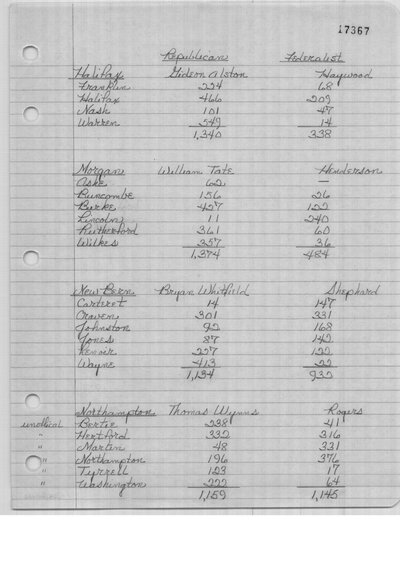 17367
Republican Federalist
Halifax Gideon Alston Haywood
Franklin 224 68
Halifax 466 209
Nash 101 47
Warren 549 14
1,340 338
Morgan William Tate Henderson
Ashe 62 —
Buncombe 156 26
Burke 427 122
Lincoln 11 240
Rutherford 361 60
Wilkes 357 36
1,374 484
New Bern Bryan Whitfield Shephard
Carteret 14 147
Craven 301 331
Johnston 92 168
Jones 87 142
Lenoir 227 122
Wayne 413 22
1,134 932
Northampton Thomas Wynns Rogers
unofficial Bertie 238 41
" Hertford 332 316
" Martin 48 331
" Northampton 196 376
" Tyrrell 123 17
" Washington 222 64
1,159 1,145